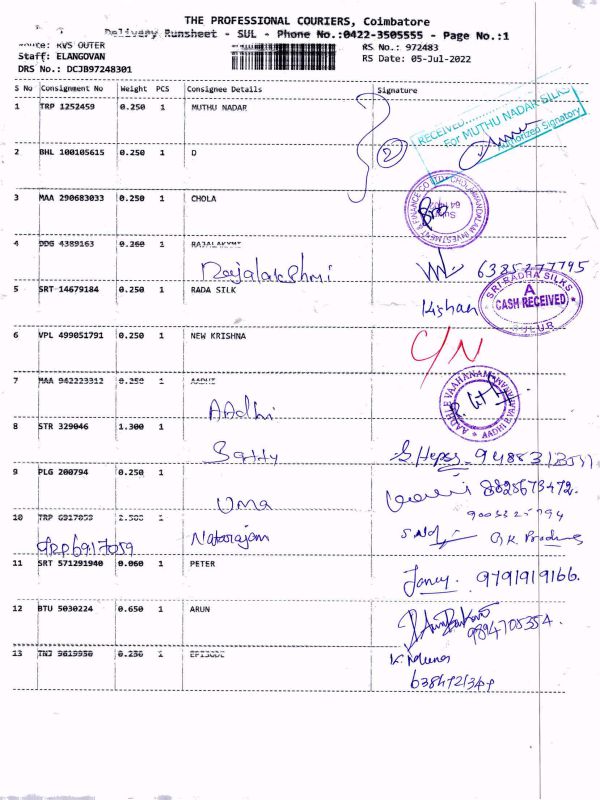 THE PROFESSIONAL COURIERS, Coimbatore
Delivery Runsheet - SUL - Phone No.:0422-3505555 - Page No.:1
Route: RVS OUTER
RS No.: 972483
Staff: ELANGOVAN
RS Date: 05-Jul-2022
DRS No.: DCJB97248301
S No Consignment No Weight PCS Consignee Details Signature
1 TRP 1252459 0.250 1 MUTHU NADAR
RECEIVED
For MUTHU NADAR SILKS
Authorized Signatory
2 BHL 100105615 0.250 1 D
2
3 MAA 290683033 0.250 1 CHOLA
CHOLAMANDALAM INVESTMENT & FINANCE CO LTD
4 DDG 4389163 0.260 1 RAJALAKXMI
Rajalakshmi
6385277795
5 SRT 14679184 0.250 1 RADA SILK
Kishan
SRI RADHA SILKS
A
CASH RECEIVED
SULUR
6 VPL 499051791 0.250 1 NEW KRISHNA
C/N
7 MAA 942223312 0.250 1 AADHI
AAdhi
8 STR 329046 1.300 1
9 PLG 200794 0.250 1
Uma
8825673472.
10 TRP 6917059 2.500 1
TRP6917059
Natarajan
11 SRT 571291940 0.060 1 PETER
Janey. 9791919166.
12 BTU 5030224 0.650 1 ARUN
9894705354.
13 TNJ 9619950 0.250 1 EPISODE